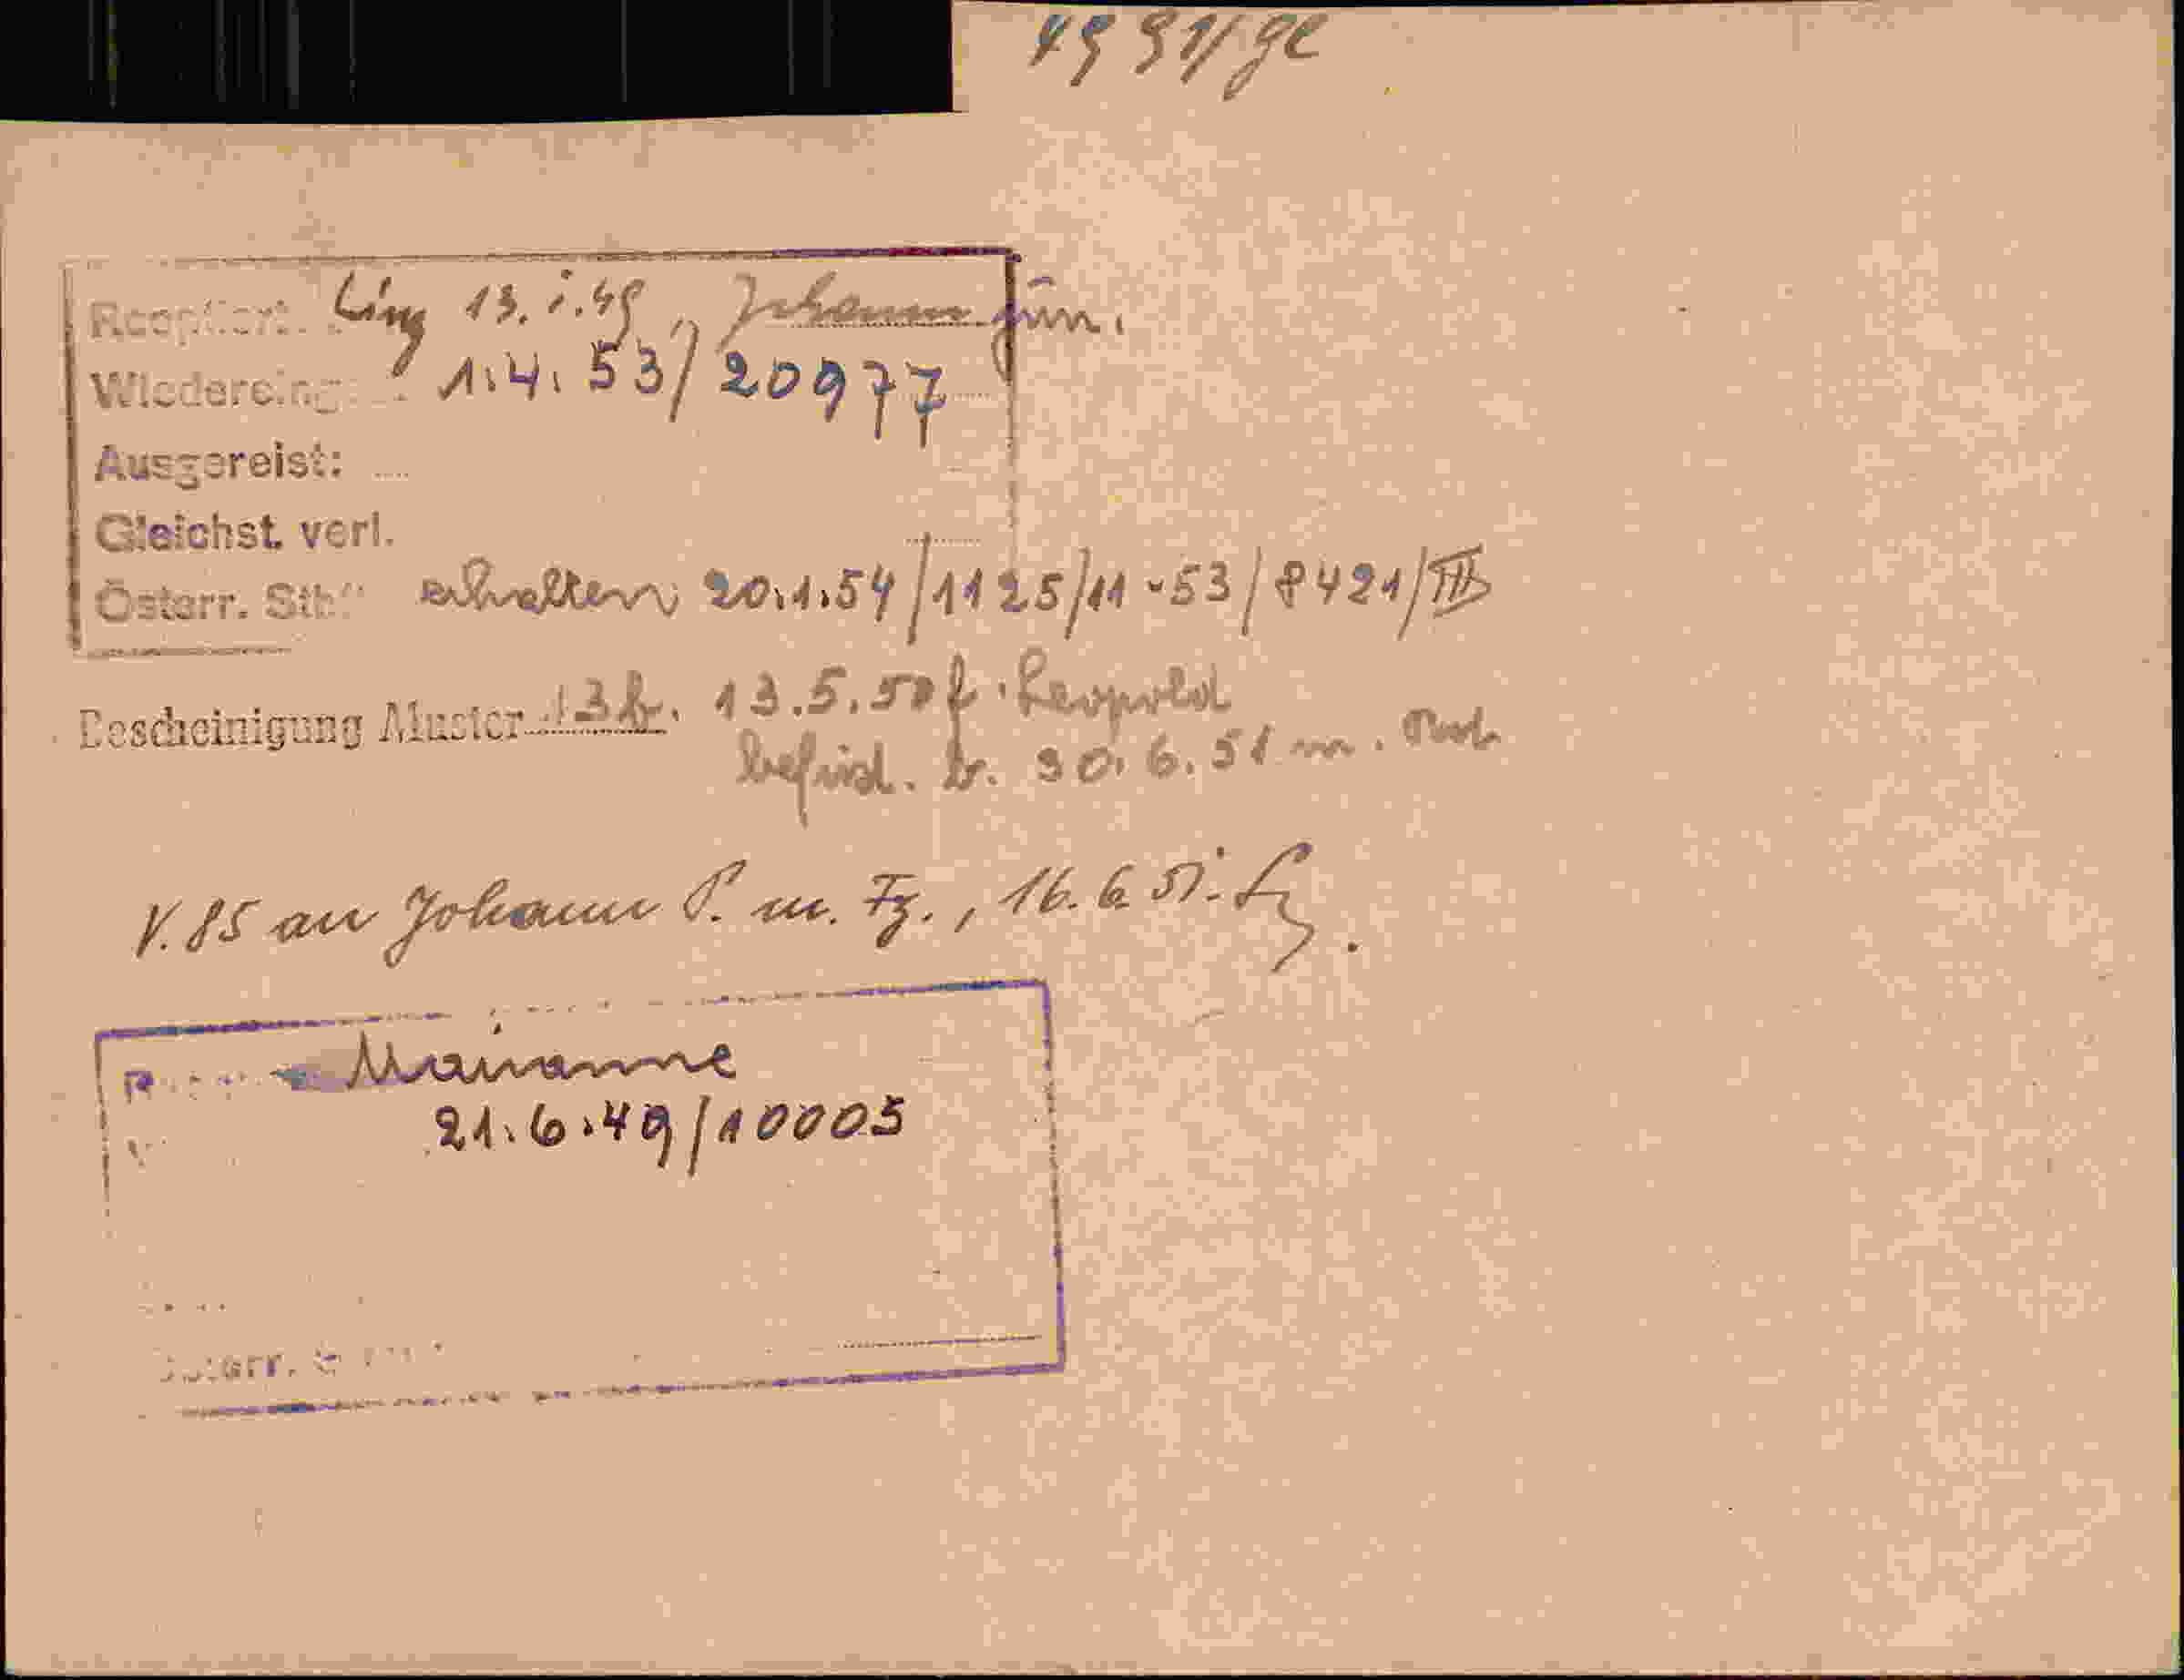 4991/ge
Reoptiert: Linz 13.i.49 „ Johann jun.
Wiedereing: 1.4.53/20977
Ausgereist:
Gleichst. verl.
Österr. Stb erhalten 20.1.54/1125/11-53/8421/III
Bescheinigung Muster 13b. 13.5.50 f. Leopold
befrist. b. 30.6.51 m.
V. 85 an Johann P. m. Fz., 16.6.51.
Marianne
21.6.49/10005
Österr.